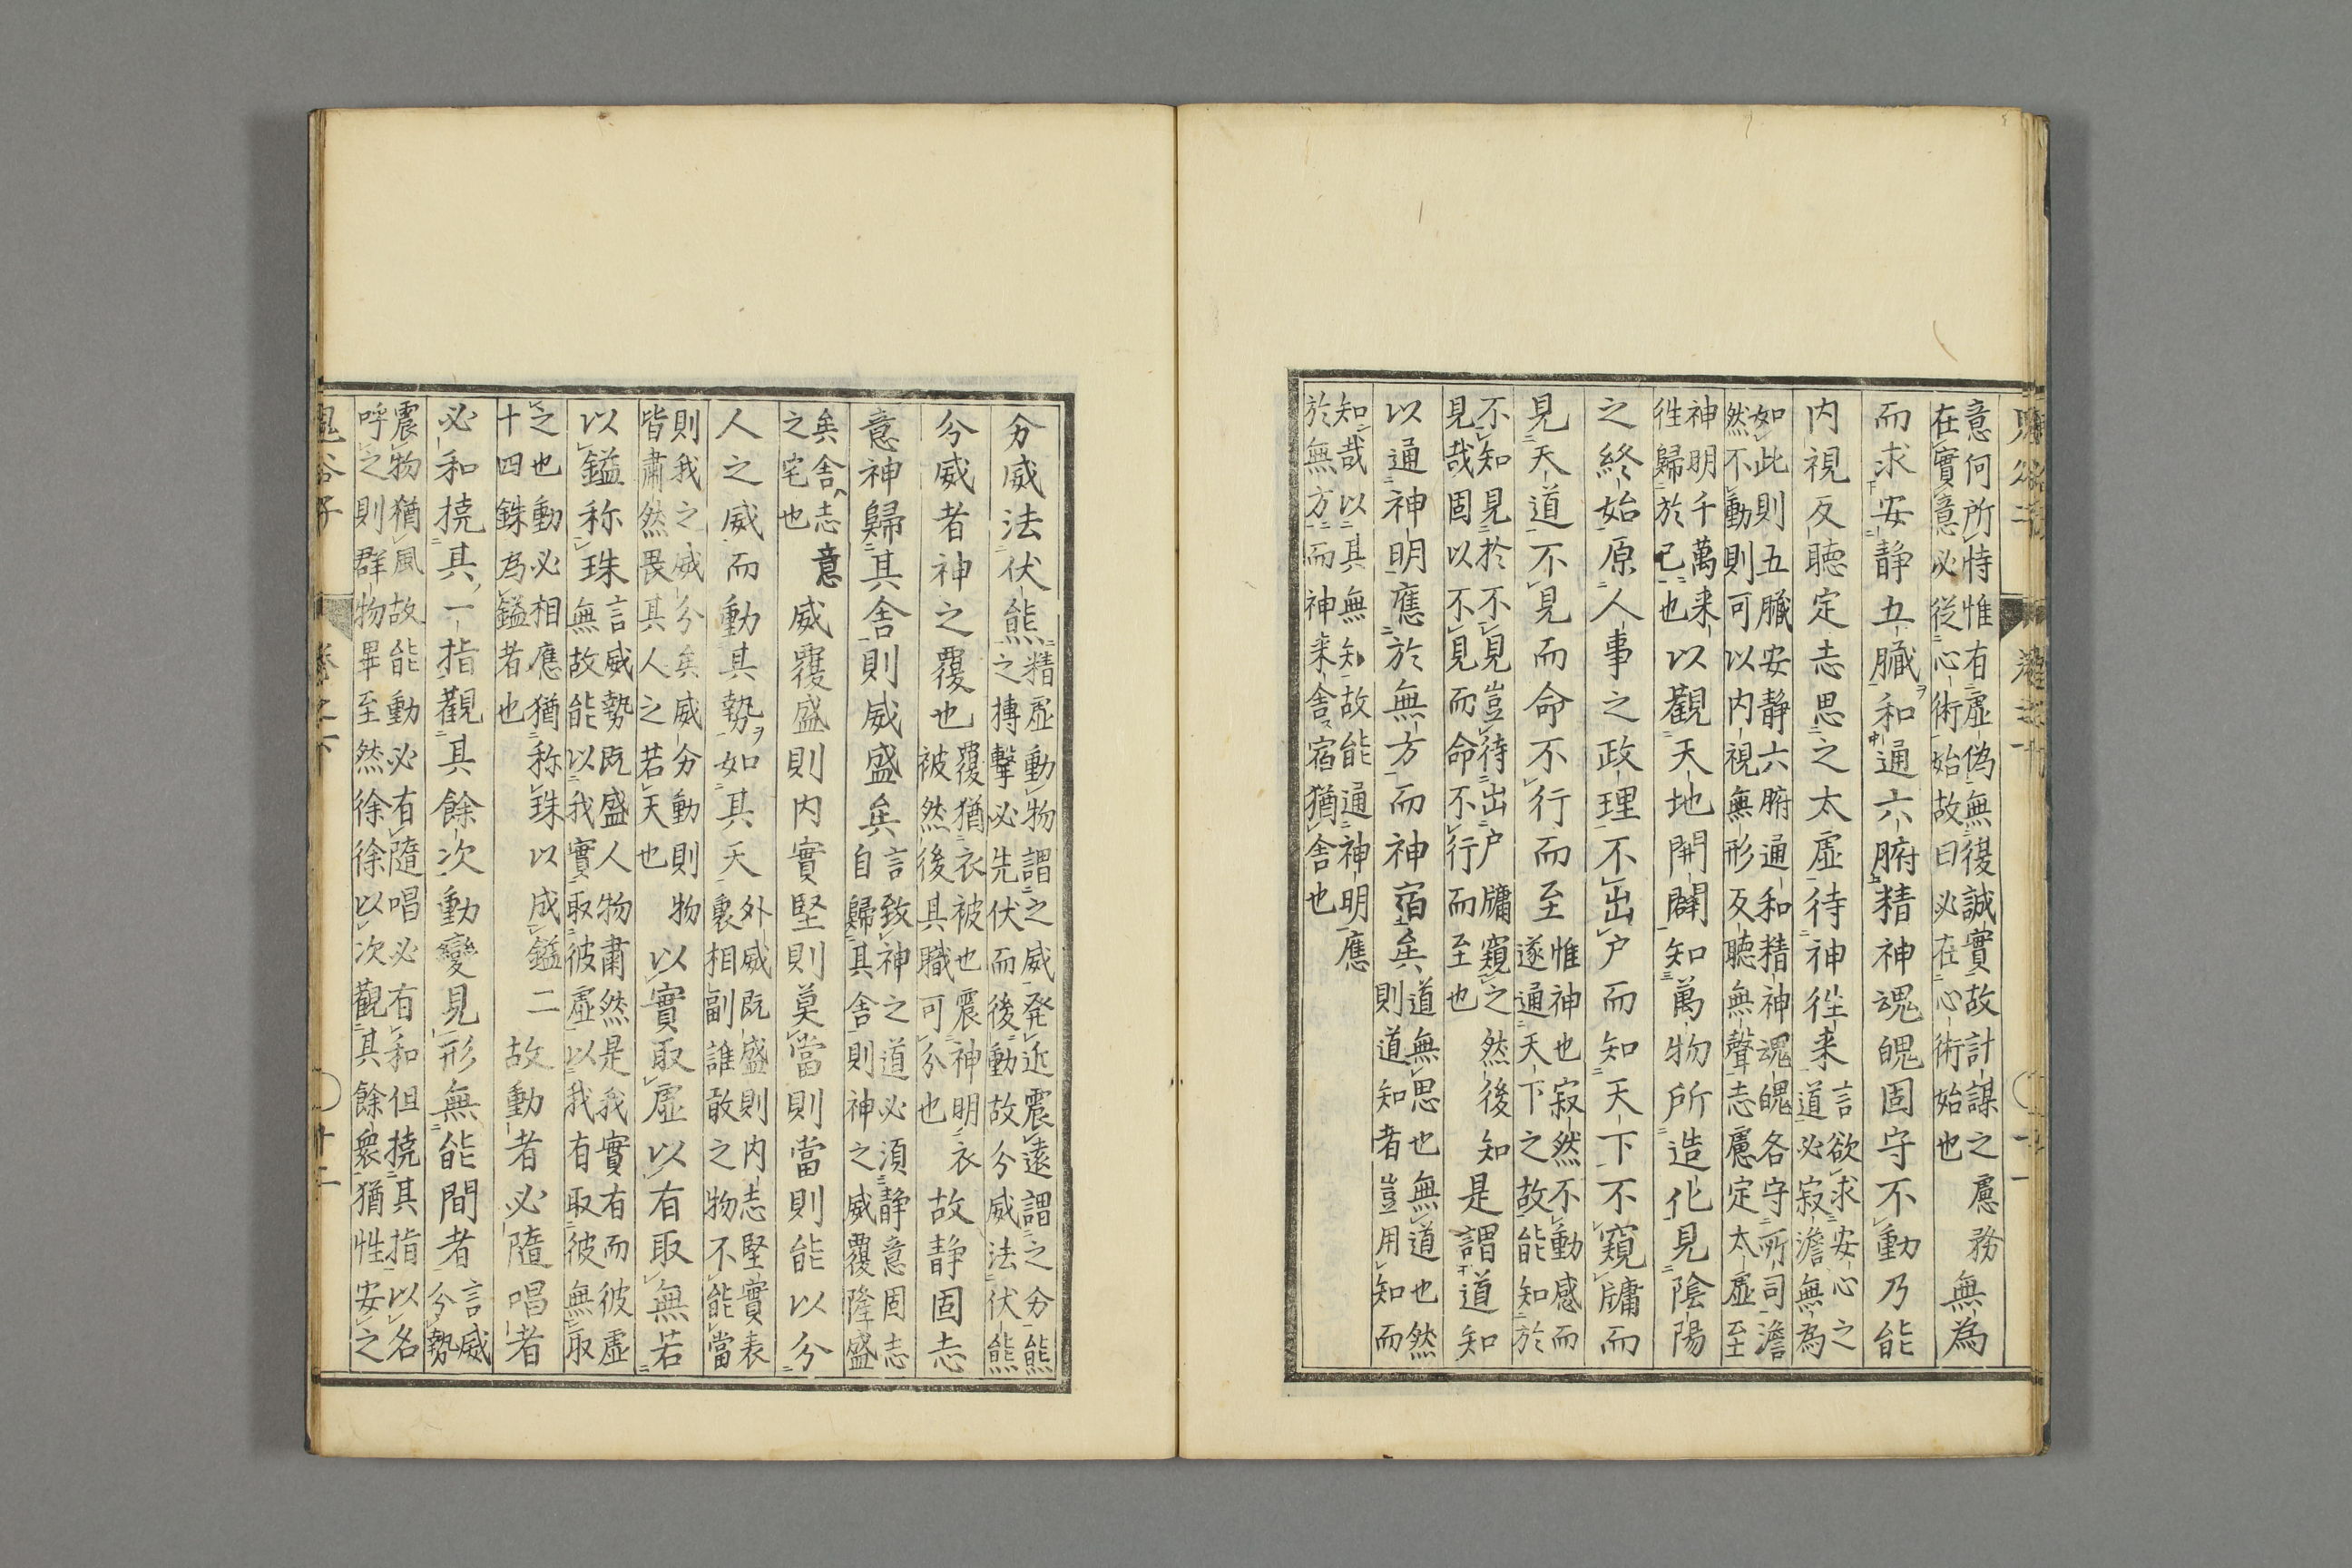 鬼谷子 卷之下 十一
意何所恃惟有虛偽無復誠實故計謀之慮務在實意必從心術始故曰必在心術始也無為
而求安静五臓和通六腑精神魂魄固守不動乃能
内視反聴定志思之太虛待神徃来言欲求安心之道必寂澹無為
如此則五臓安静六腑通和精神魂魄各守所司澹然不動則可以内視無形反聴無聲志慮定太虛至
神明千萬来徃歸於己也以觀天地開闢知萬物所造化見陰陽
之終始原人事之政理不出户而知天下不窺牖而
見天道不見而命不行而至惟神也寂然不動感而遂通天下之故能知於
不知見於不見豈待出户牖窺之然後知見哉固以不見而命不行而至也是謂道知
以通神明應於無方而神宿矣道無思也無道也然則道知者豈用知而
知哉以其無知故能通神明應於無方而神来舍宿猶舍也
分威法伏熊精虛動物謂之威発近震遠謂之分熊之搏擊必先伏而後動故分威法伏熊
分威者神之覆也覆猶衣被也震神明衣被然後其職可分也故静固志
意神歸其舍則威盛矣言致神之道必須静意固志自歸其舍則神之威覆隆盛
矣舍志意之宅也威覆盛則内實堅則莫當則當則能以分
人之威而動其勢如其天外威既盛則内志堅實表裏相副誰敢之物不能當
則我之威分矣威分動則物皆肅然畏其人之若天也以實取虛以有取無若
以鎰称珠言威勢既盛人物肅然是我實有而彼虛無故能以我實取彼虛以我有取彼無取
之也動必相應猶称珠以成鎰二十四銖為鎰者也故動者必隨唱者
必和撓其一指觀其餘次動變見形無能間者言威分勢
震物猶風故能動必有隨唱必有和但撓其指以名呼之則群物畢至然徐徐以次觀其餘衆猶性安之
鬼谷子 卷之下 十二